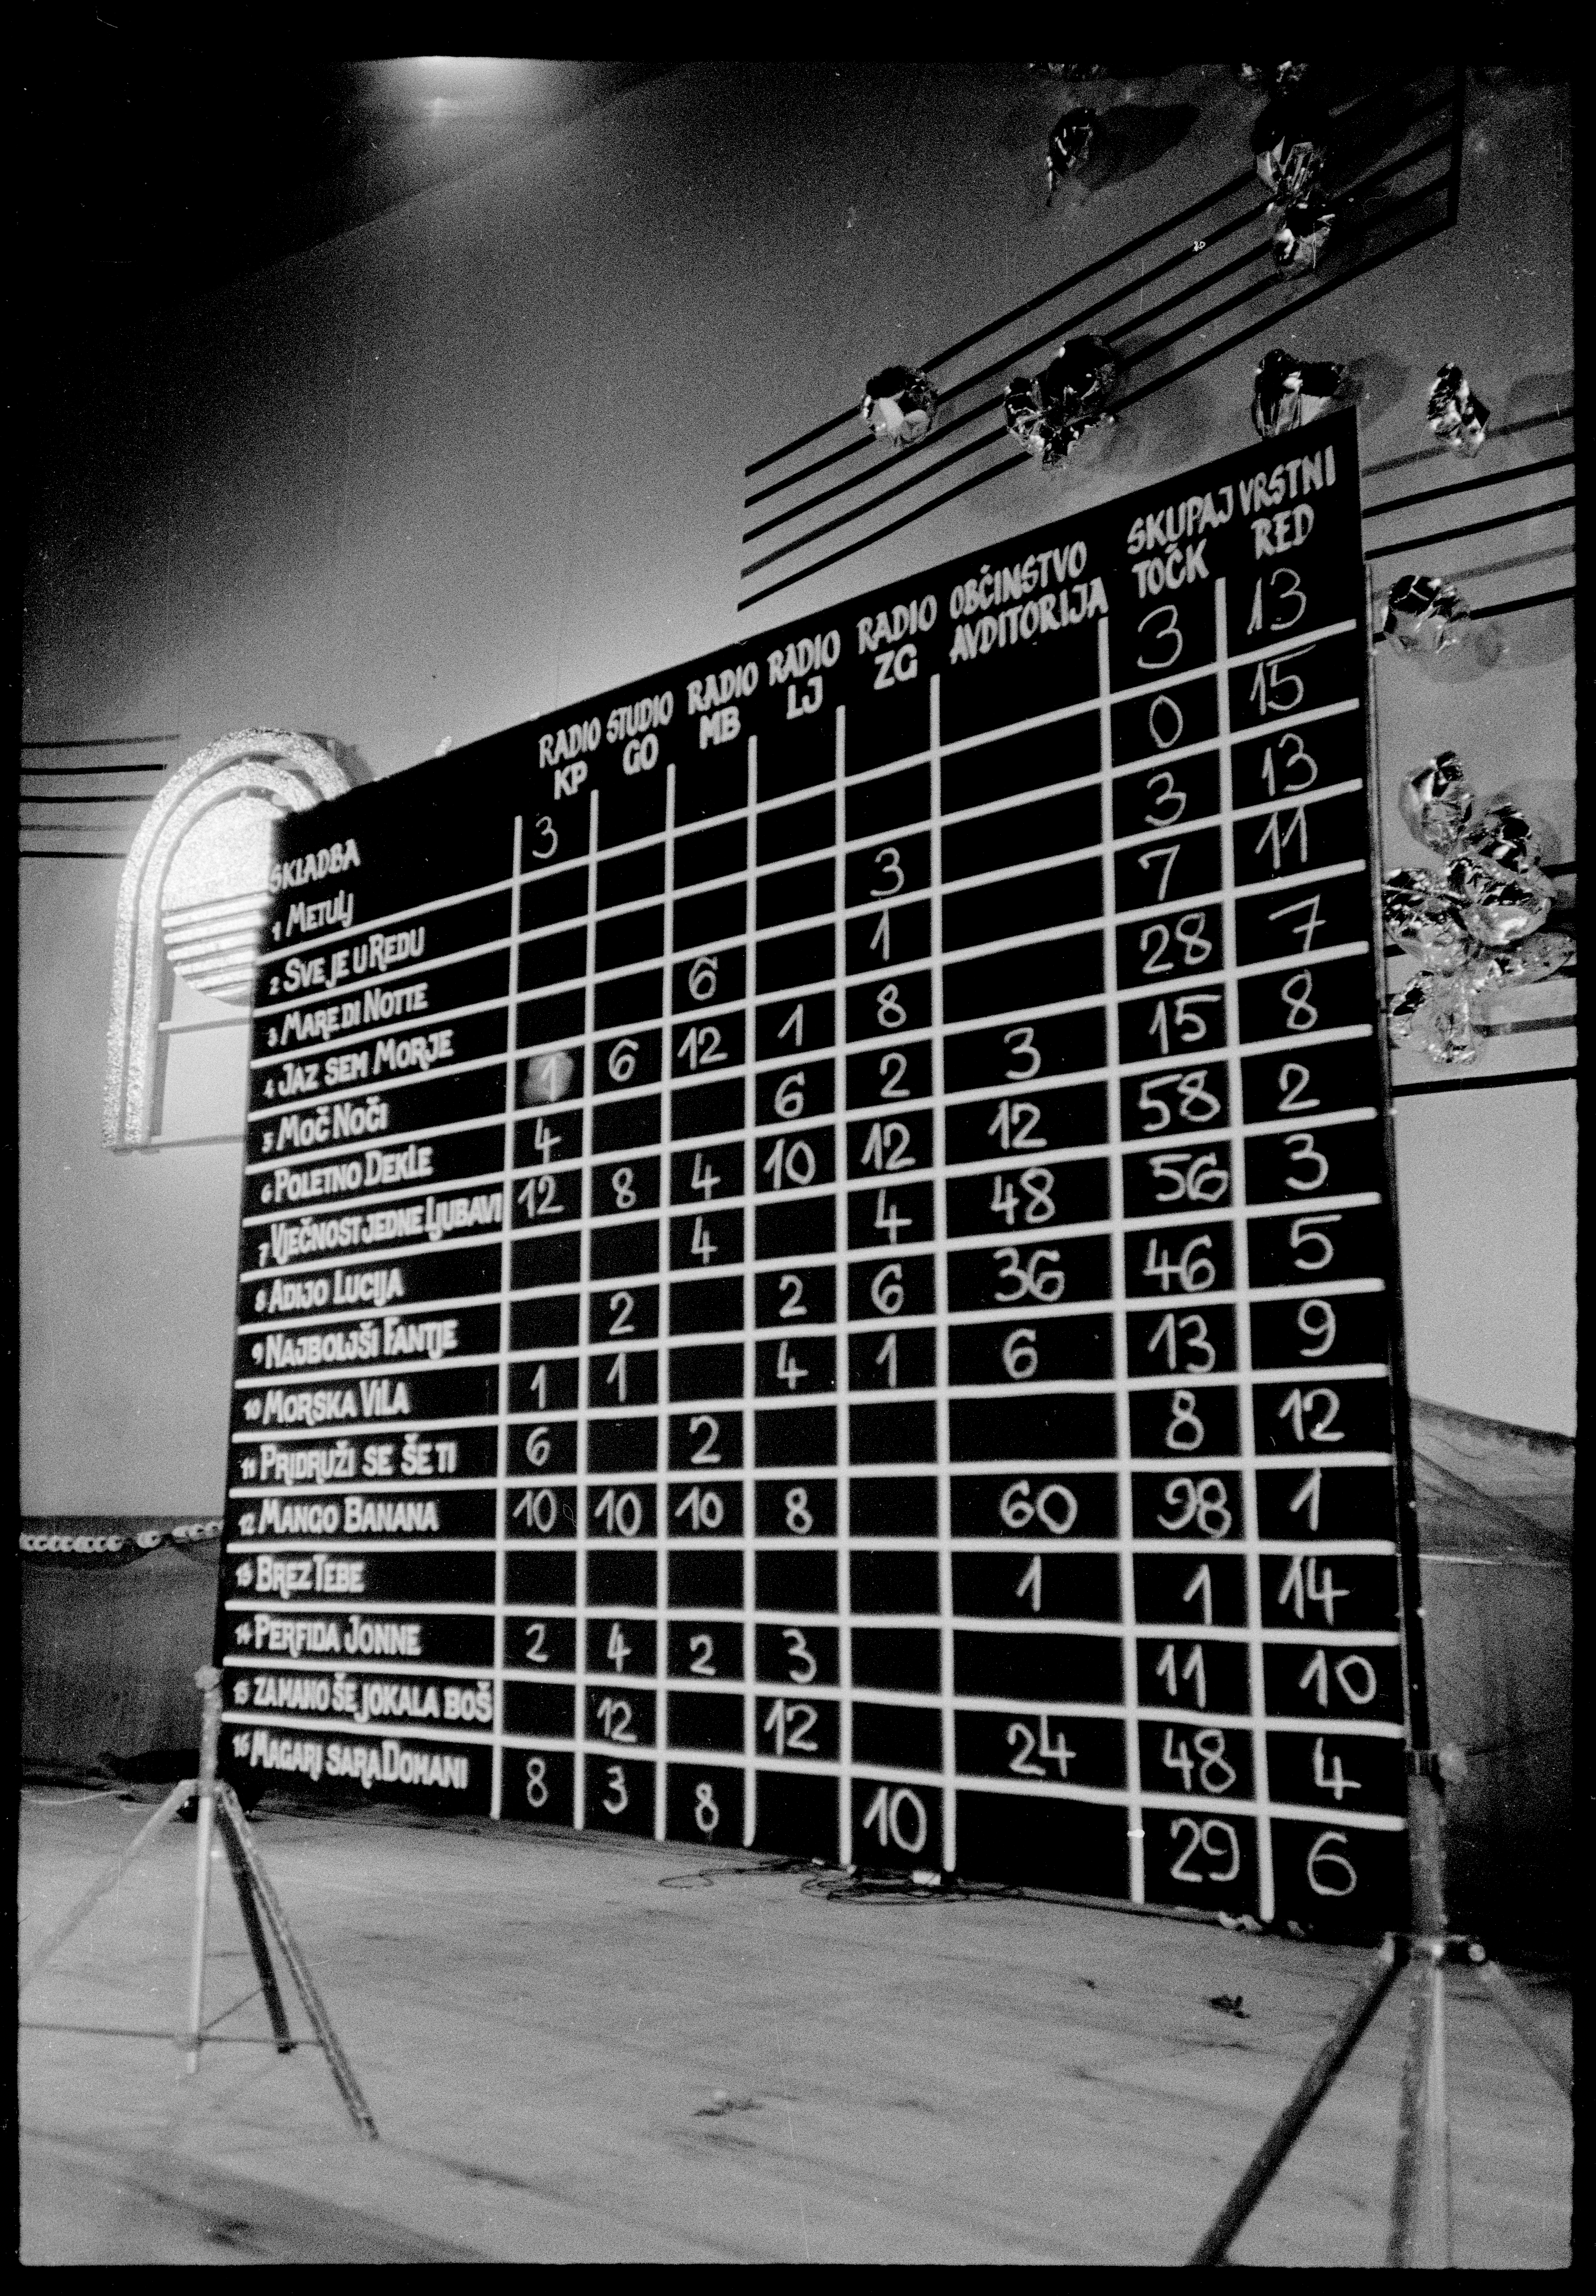 SKLADBA RADIO KP STUDIO GO RADIO MB RADIO LJ RADIO ZG OBČINSTVO AVDITORIJA SKUPAJ TOČK VRSTNI RED
1 METULJ 3 3 13
2 SVE JE U REDU 0 15
3 MARE DI NOTTE 3 3 13
4 JAZ SEM MORJE 6 1 7 11
5 MOČ NOČI 1 6 12 1 8 28 7
6 POLETNO DEKLE 4 6 2 3 15 8
7 VJEČNOST JEDNE LJUBAVI 12 8 4 10 12 12 58 2
8 ADIJO LUCIJA 4 4 48 56 3
9 NAJBOLJŠI FANTJE 2 2 6 36 46 5
10 MORSKA VILA 1 1 4 1 6 13 9
11 PRIDRUŽI SE ŠE TI 6 2 8 12
12 MANGO BANANA 10 10 10 8 60 98 1
13 BREZ TEBE 1 1 14
14 PERFIDA JONNE 2 4 2 3 11 10
15 ZA MANO ŠE JOKALA BOŠ 12 12 24 48 4
16 MAGARI SARA DOMANI 8 3 8 10 29 6